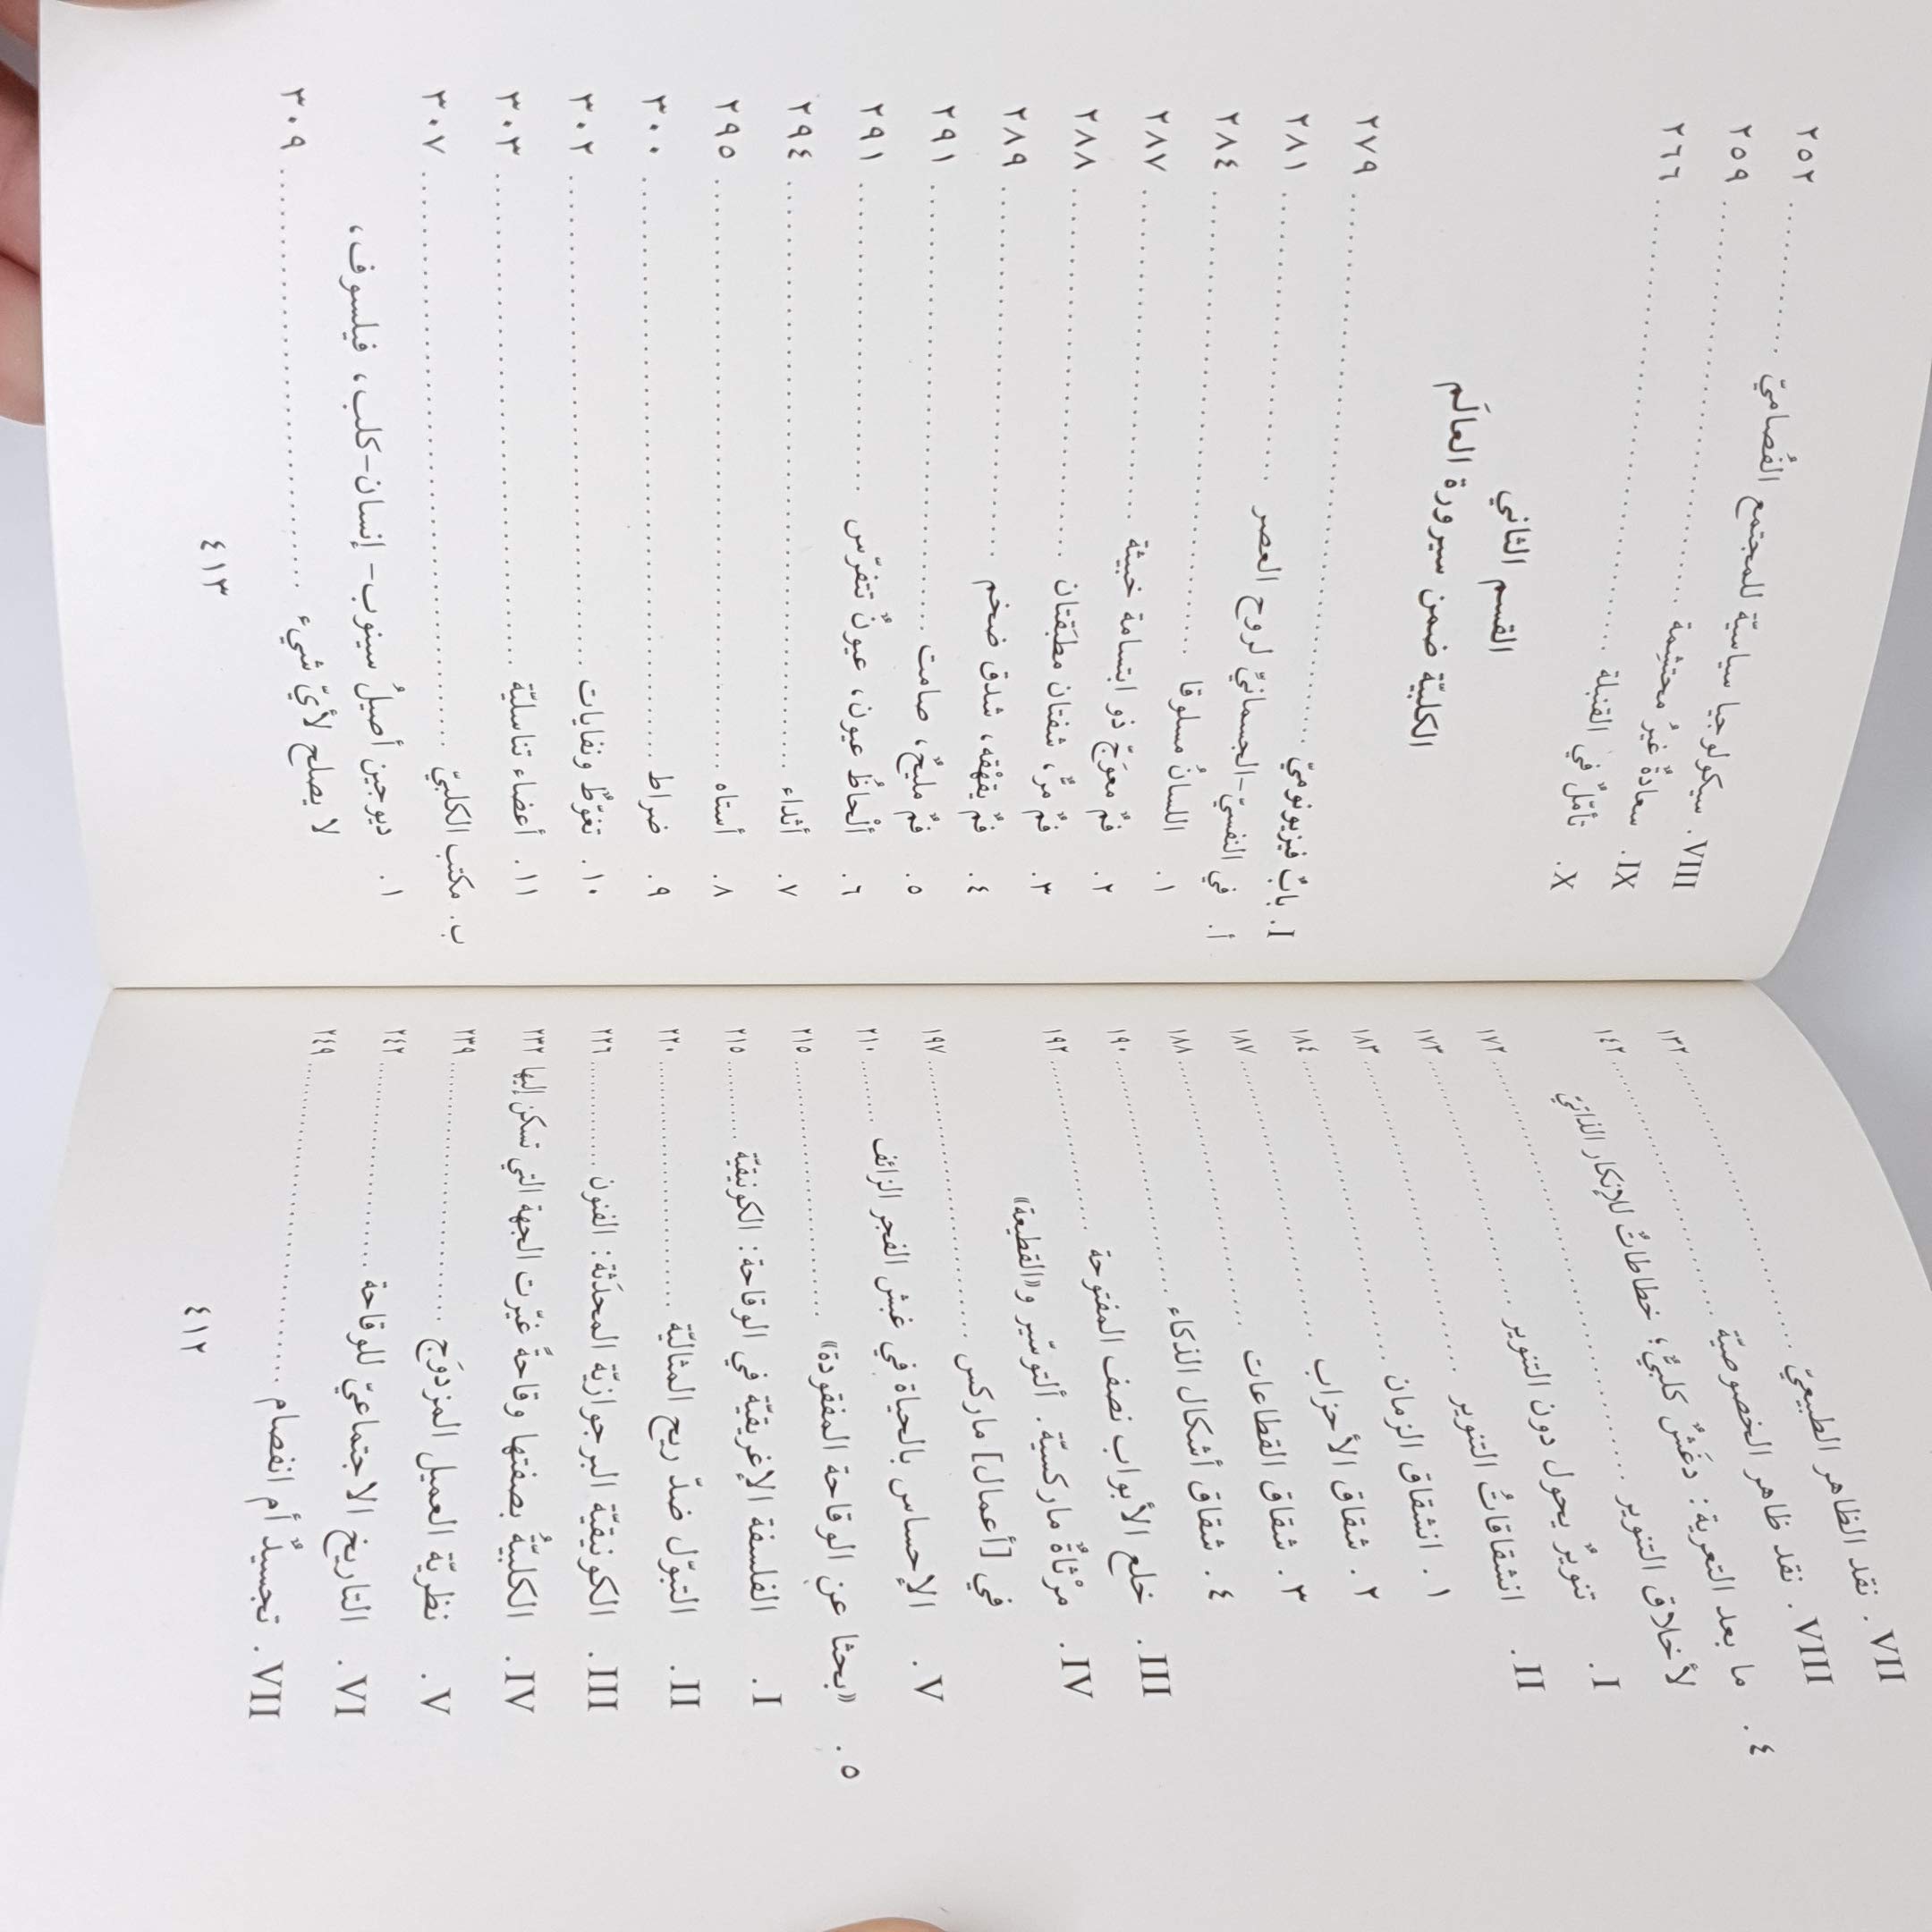 VII. نقد الظاهر الطبيعيّ ........ ١٣٢
VIII. نقد ظاهر الخصوصيّة ........ ١٤٢
٤. ما بعد التعرية: دغَشٌ كلبيٌّ؛ خطاطاتٌ للإنكار الذاتيّ
لأخلاق التنوير ........ ١٧٢
I. تنويرٌ يحول دون التنوير ........ ١٧٣
II. انشقاقاتُ التنوير ........ ١٨٣
١. انشقاق الزمان ........ ١٨٤
٢. شقاق الأحزاب ........ ١٨٧
٣. شقاق القطاعات ........ ١٨٨
٤. شقاق أشكال الذكاء ........ ١٩٠
III. خلع الأبواب نصف المفتوحة ........ ١٩٢
IV. مرْثاةٌ ماركسيّة. ألتوسّير و«القطيعة»
في [أعمال] ماركس ........ ١٩٧
V. الإحساس بالحياة في غبش الفجر الزائف ........ ٢١٠
٥. «بحثا عن الوقاحة المفقودة» ........ ٢١٥
I. الفلسفة الإغريقيّة في الوقاحة: الكونيقيّة ........ ٢١٥
II. التبوّل ضدّ ريح المثاليّة ........ ٢٢٠
III. الكونيقيّة البرجوازيّة المحدَثة: الفنون ........ ٢٢٦
IV. الكلبيّةُ بصفتها وقاحةً غيّرت الجهة التي تسكن إليها ٢٣٢
V. نظريّة العميل المزدوَج ........ ٢٣٩
VI. التاريخ الاجتماعيّ للوقاحة ........ ٢٤٢
VII. تجسيدٌ أم انفصام ........ ٢٤٩
٤١٢
VIII. سيكولوجيا سياسيّة للمجتمع الفُصاميّ ........ ٢٥٢
IX. سعادةٌ غيرُ محتشِمة ........ ٢٥٩
X. تأمّلٌ في القنبلة ........ ٢٦٦
القسم الثاني
الكلبيّة ضمن سيرورة العالَم
I. بابٌ فيزيونوميّ ........ ٢٧٩
أ. في النفسيّ-الجسمانيّ لروح العصر ........ ٢٨١
١. اللسانُ مسلوقا ........ ٢٨٤
٢. فمٌ معوَجّ ذو ابتسامة خبيثة ........ ٢٨٧
٣. فمٌ مرٌّ، شفتان مطبَقتان ........ ٢٨٨
٤. فمٌ يقهْقه، شدق ضخم ........ ٢٨٩
٥. فمٌ مليحٌ، صامت ........ ٢٩١
٦. ألْحاظُ عيون، عيونٌ تتفرّس ........ ٢٩١
٧. أثداء ........ ٢٩٤
٨. أستاه ........ ٢٩٥
٩. ضراط ........ ٣٠٠
١٠. تغوّطٌ ونفايات ........ ٣٠٢
١١. أعضاء تناسليّة ........ ٣٠٣
ب. مكتب الكلبيّ ........ ٣٠٧
١. ديوجين أصيلُ سينوب- إنسان-كلب، فيلسوف،
لا يصلح لأيّ شيء ........ ٣٠٩
٤١٣